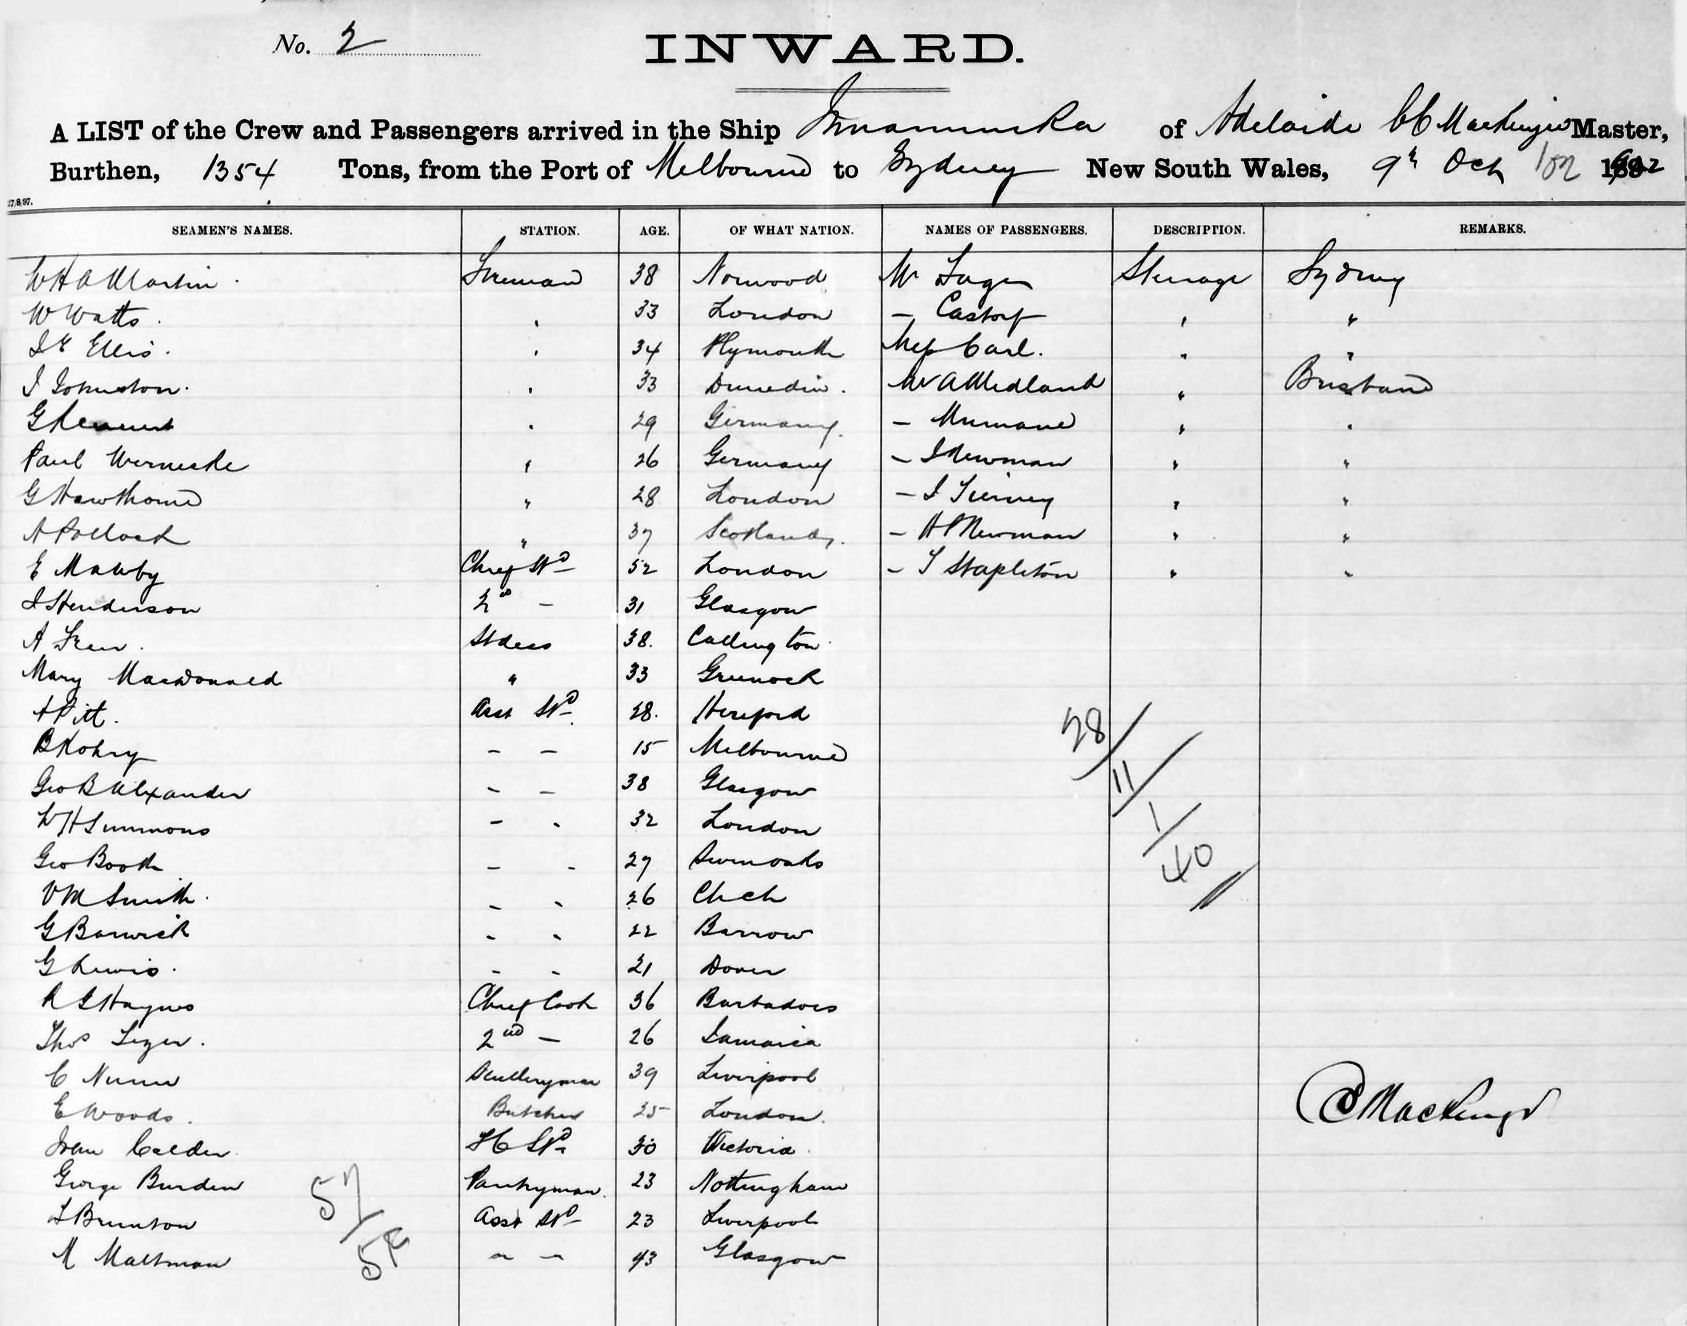 No. 2
INWARD.
A LIST of the Crew and Passengers arrived in the Ship Innamincka of Adelaide CC Mackenzie Master,
Burthen, 1354 Tons, from the Port of Melbourne to Sydney New South Wales, 9th Oct 102 1892
27.8.97.
SEAMEN'S NAMES. STATION. AGE. OF WHAT NATION. NAMES OF PASSENGERS. DESCRIPTION. REMARKS.
W H A Martin. Fireman 38 Norwood Mr Steerage Sydney
W Watts. " 33 London - " "
Ellis. " 34 Plymouth Miss Carl. " "
J Johnston. " 33 Dunedin. Mr A Midland " Brisbane
G " 29 Germany. - " "
Paul Wernecke " 26 Germany - J Newman " "
G Hawthorne " 28 London - J Tierney " "
A Pollock " 37 Scotland. - H P Newman " "
E Mawby Chief Std 52 London - T Stapleton " "
J Henderson 2nd - 31 Glasgow
A Stdess 38. Callington
Mary Macdonald " 33 Greenock
A Pitt. Asst Std. 28. Hereford
B - - 15 Melbourne
Geo B Alexander - - 38 Glasgow
W H Simmons - - 32 London
Geo Booth - - 27
V M Smith. - - 26
G Barwick - - 22 Barrow
G Lewis. - - 21 Dover
R G Haynes Chief Cook 36 Barbadoes
Thos. 2nd - 26 Jamaica
C Nunn Sculleryman 39 Liverpool
E Woods. Butcher 25 London.
Calder Std. 30 Victoria.
George Burden Pantryman. 23 Nottingham
Brunton Asst Std 23 Liverpool
M Maltman - - 43 Glasgow
28
11
1
40
57
58
CC Mackenzie